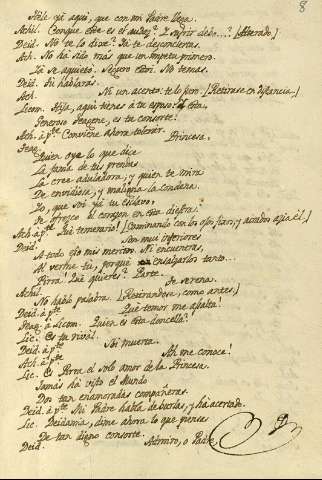 8
Hele ya aqui, que con mi Padre llega.
Achil. Conque este es el audaz? I sufrir debo...? [Alterado.]
Deid. No te lo dixe? Ya te desconciertas.
Ach. No há sido más que un impetu primero.
Yá me aquieto. Seguro estoi. No temas.
Deid. Tu hablarás.
Ach. Ni un acento: te lo juro. [Retirase en distancia.]
Licom. Hija, aqui tienes á tu esposo: el Grita,
Generoso Teagene, es tu consorte!
Ach. á pte. Conviene ahora tolerar.
Teag. Princesa.
Quien oye lo que dice
La fama de tus prendas
La cree aduladora; y quien te mira
De envidiosa, y maligna la condena.
Yo, que soi yá tu esclavo,
Te ofrezco el corazon en esta diestra.
Ach. á pte. Qué temerario! [Caminando con los ojos fixos, y airados azia él.]
Deid. Son mui inferiores
A todo eso mis meritos. Ni encuentras,
Al verme tú, porqué exalzarlos tanto...
Pirra! Qué quieres? Parte.
Achil. Te serena.
No habló palabra. [Retirandose, como antes.]
Deid. á pte. Qué temor me asalta!
Teag. á Licom. Quien es esta doncella?
Lic. Es tu rival.
Deid. á pte. Soi muerta.
Ach. á pte. Ah me conoce!
Lic. Es Pirra el solo amor de la Princesa.
Jamás há visto el Mundo
Dos tan enamoradas compañeras.
Deid. á pte. Mi Padre habla de burlas, y há acertado.
Lic. Deidamia, dime ahora lo que piensas
De tan digno consorte.
Deid. Admiro, o Padre,